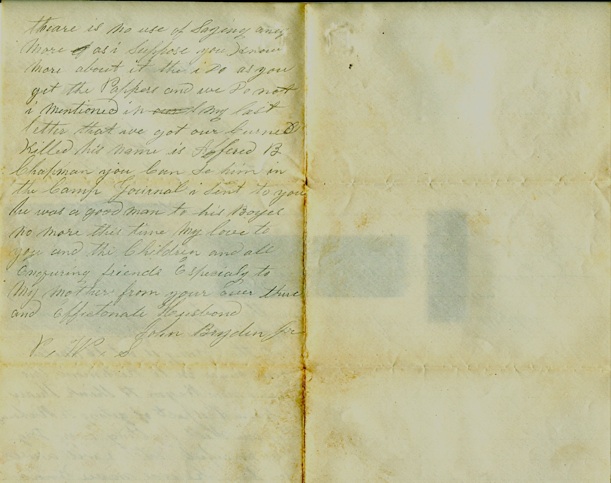 theare is no use of Sayeng aney
more of as i Suppose you know
more about it the i Do as you
get the Pappers and we Do not
i mentioned in my last
letter that we got our Curnel
Killed his name is Alfered B
Chapman you Can Se him in
the Camp Journal i Sent to you
he was a good man to his Boyes
no more this time my love to
you and the Children and all
Enquring friends Especialy to
my mother from your ever true
and Effectonate Husbond
John Bryden Jr